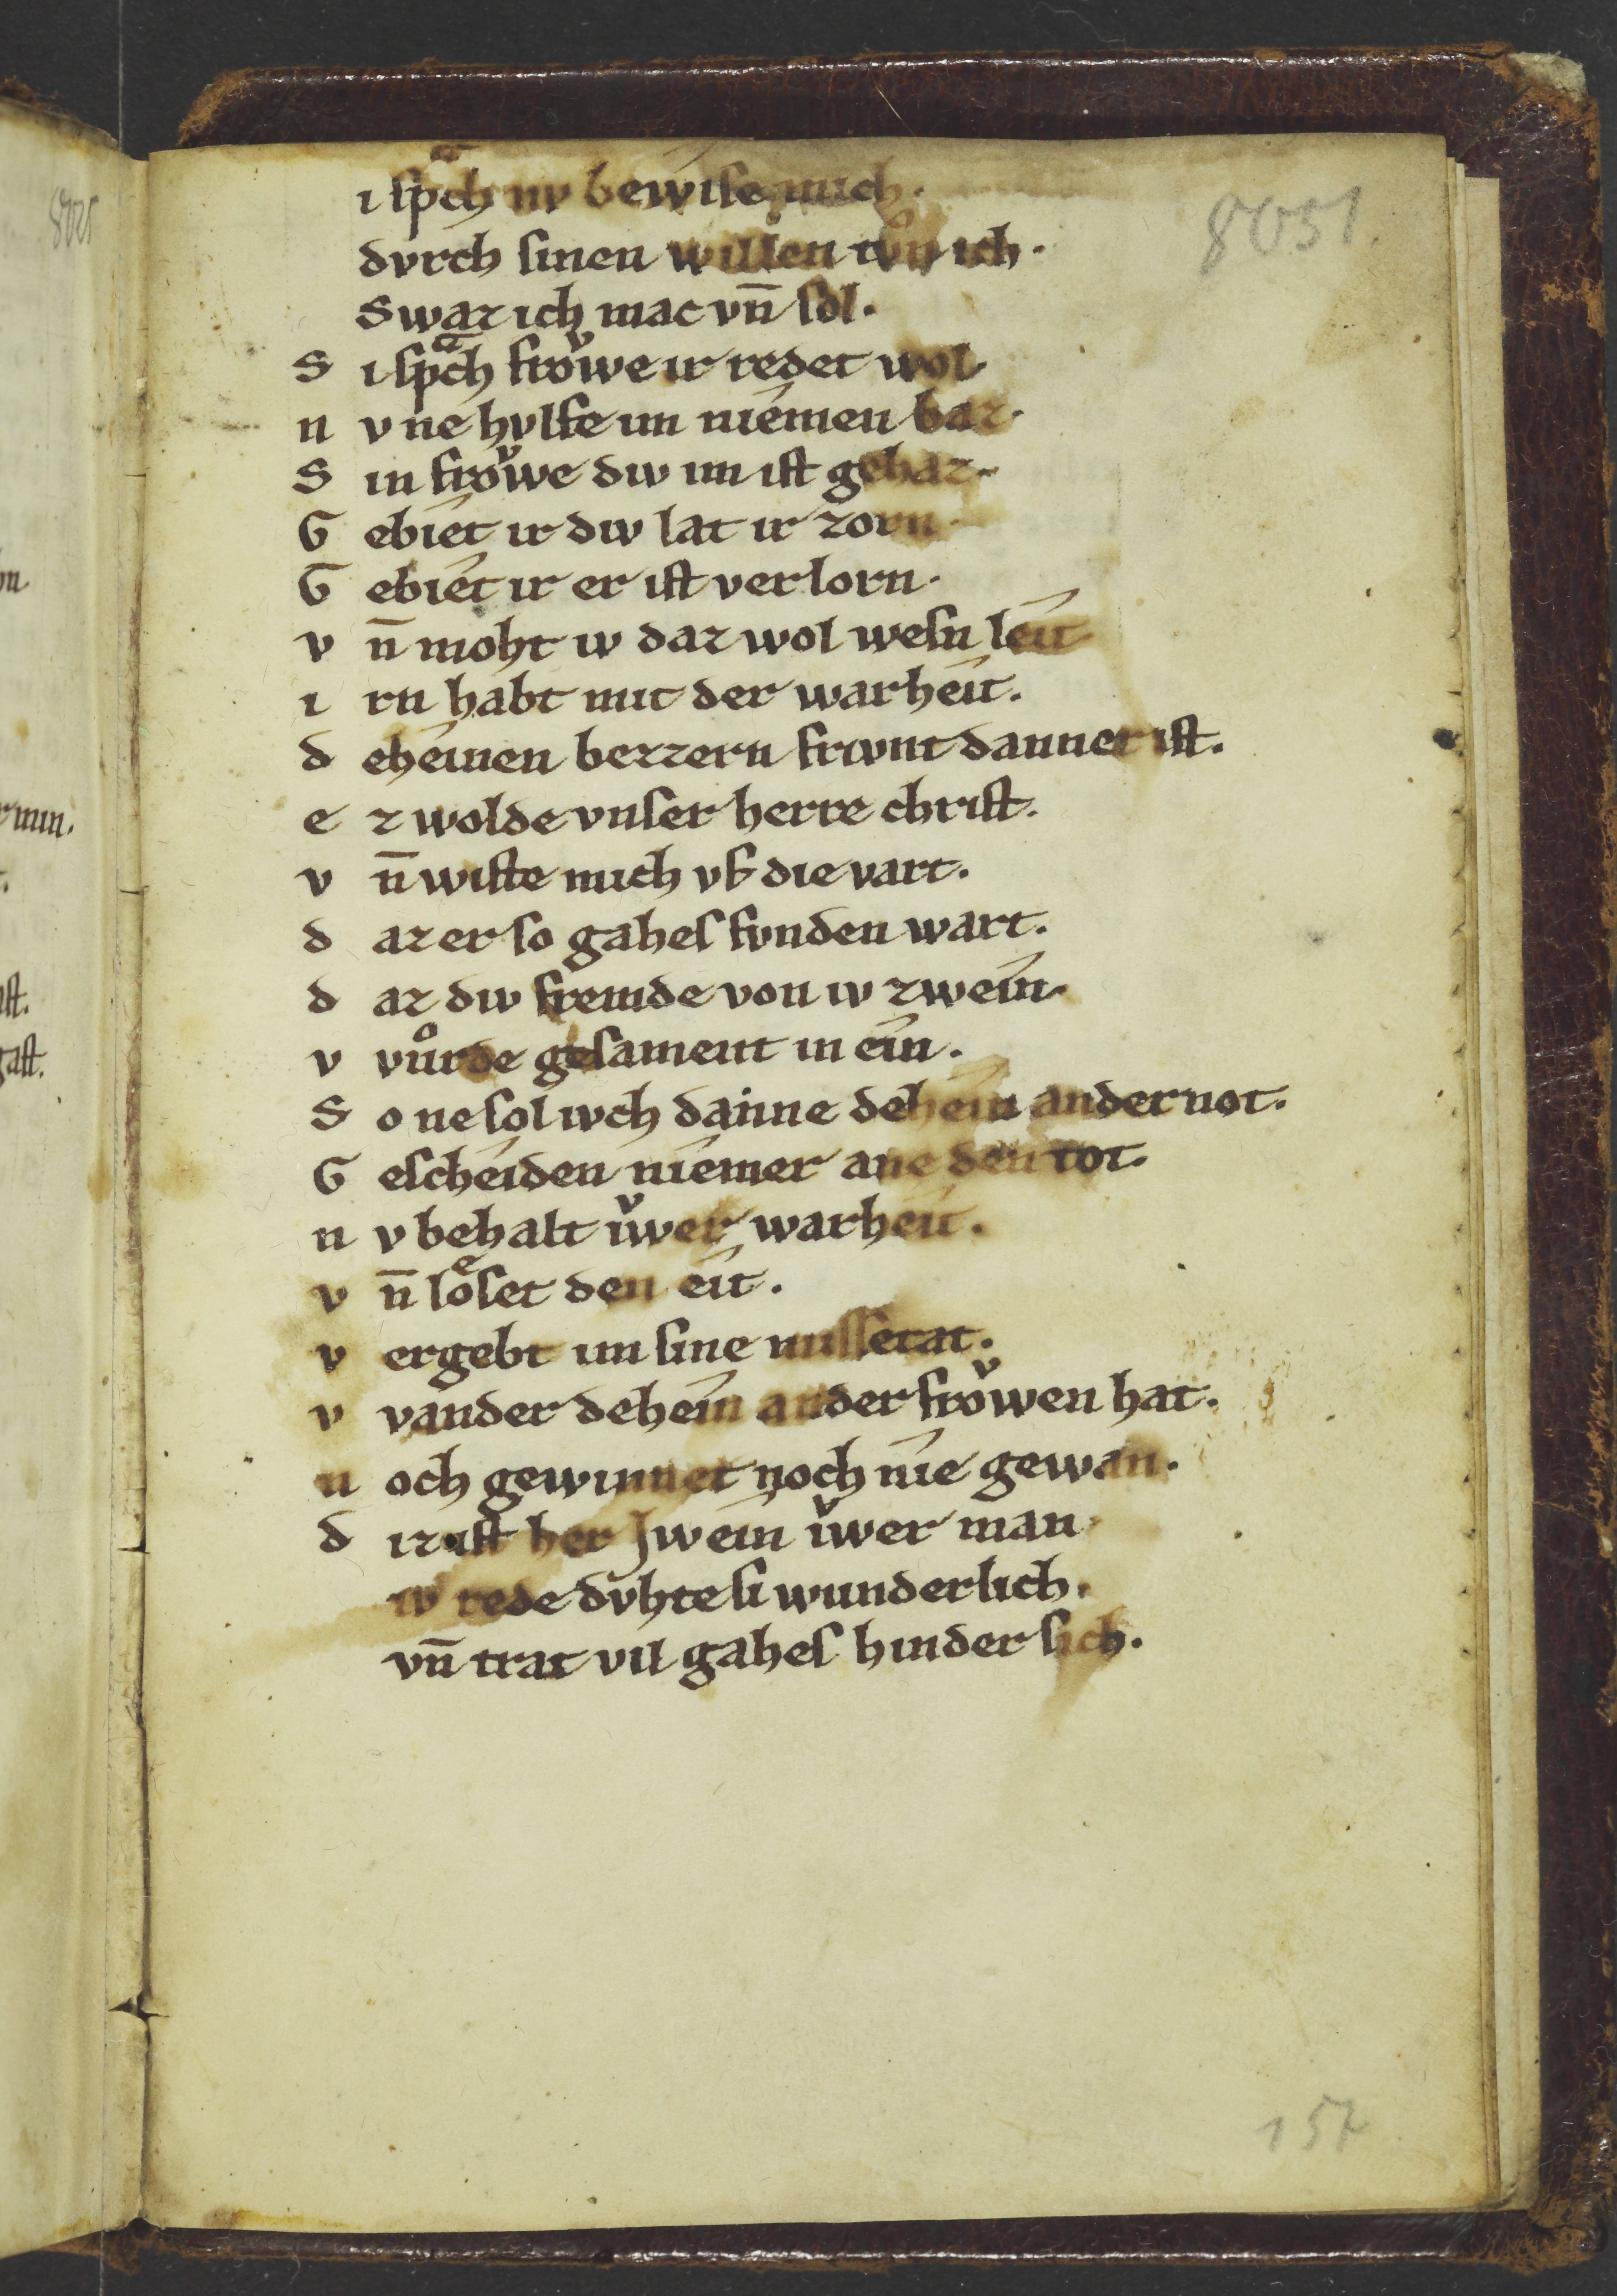 ı ſpͣch nv bewiſe mich.
dvrch ſinen willen tvͦn ich.
Swaz ich mac vn̄ ſol.
S i ſpͣch froͮwe ir redet wol.
n v ne hvlfe im niemen baz.
S in froͮwe div im iſt gehaz.
G ebiet ir div lat ir zorn.
G ebiet ir er iſt verlorn.
v n̄ moht iv daz wol weſn leit.
i rn habt mit der warheit.
d eheinen bezzern frivnt danner iſt.
e z wolde vnſer herre chriſt.
v n̄ wiſte mich vf die vart.
d az er ſo gahes fvnden wart.
d az div fremde von iv zwein.
v vuͦrde geſament in ein.
S o ne ſol ivch danne dehein ander not.
G eſcheiden niemer ane den tot.
n v behalt iͮwer warheit.
v n̄ loͤſet den eit.
v ergebt im ſine miſſetat.
v vander dehein ander froͮwen hat.
n och gewinnet noch nie gewan.
d iz iſt her Jwein iͮwer man.
iv rede dvhte ſi wunderlich.
vn̄ trat vil gahes hinder ſich.
8051.
157
8025